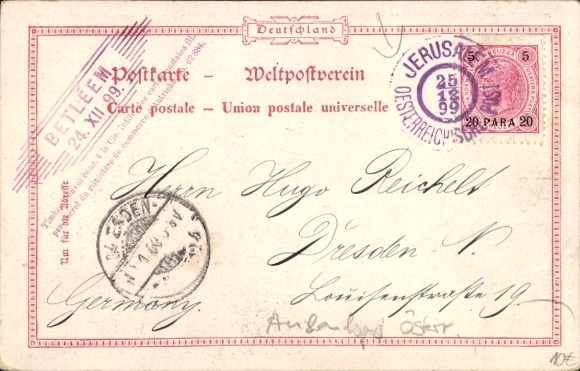 Deutschland
Postkarte – Weltpostverein
Carte postale – Union postale universelle
BETLÉEM
24. XII 99.
JERUSALEM
25
12
99
OESTERREICHISCHE POST
5 5
20 PARA 20
Nur für die Adresse
Herrn Hugo Reichelt
Dresden N.
Louisenstraße 19.
Germany.
DRESDEN
Österr.
10€